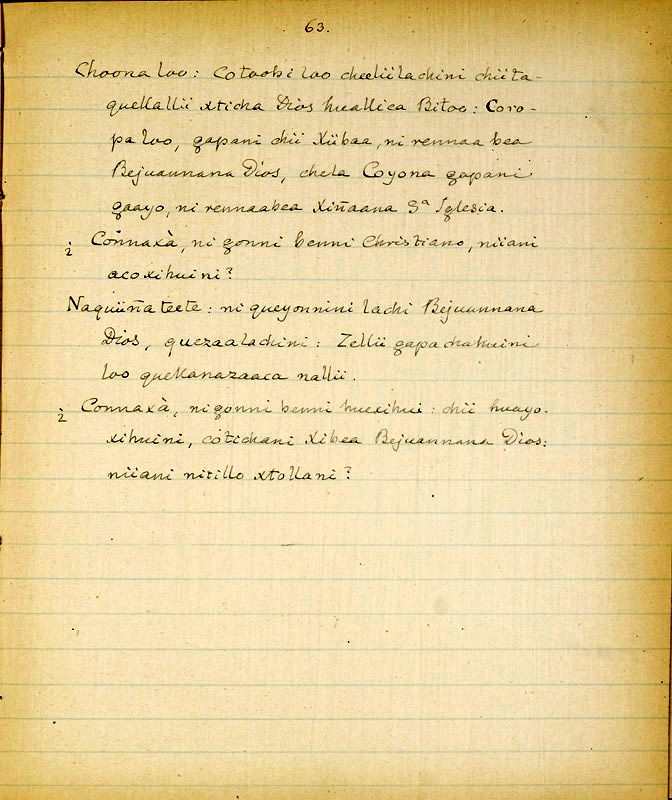 63.
Choona loo: Cotoobi loo cheeliilachini chiita-
quellallii xticha Dios huallica Bitoo: Coro-
pa loo, gapani chii Xiibaa, ni rennaa bea
Bejuannana Dios, chela Coyona gapani
gaayo, ni rennaabea Xiñaana Sª Iglesia.
¿ Connaxà, ni gonni benni Christiano, niiani
acoxihuini?
Naquiiñateete: ni queyonnini lachi Bejuannana
Dios, quezaalachini: Zellii gapa chahuini
loo quellanazaaca nallii.
¿ Connaxà, ni gonni benni huexihui: chii huayo-
xihuini, cotichani Xibea Bejuannana Dios:
niiani nitillo xtollani?